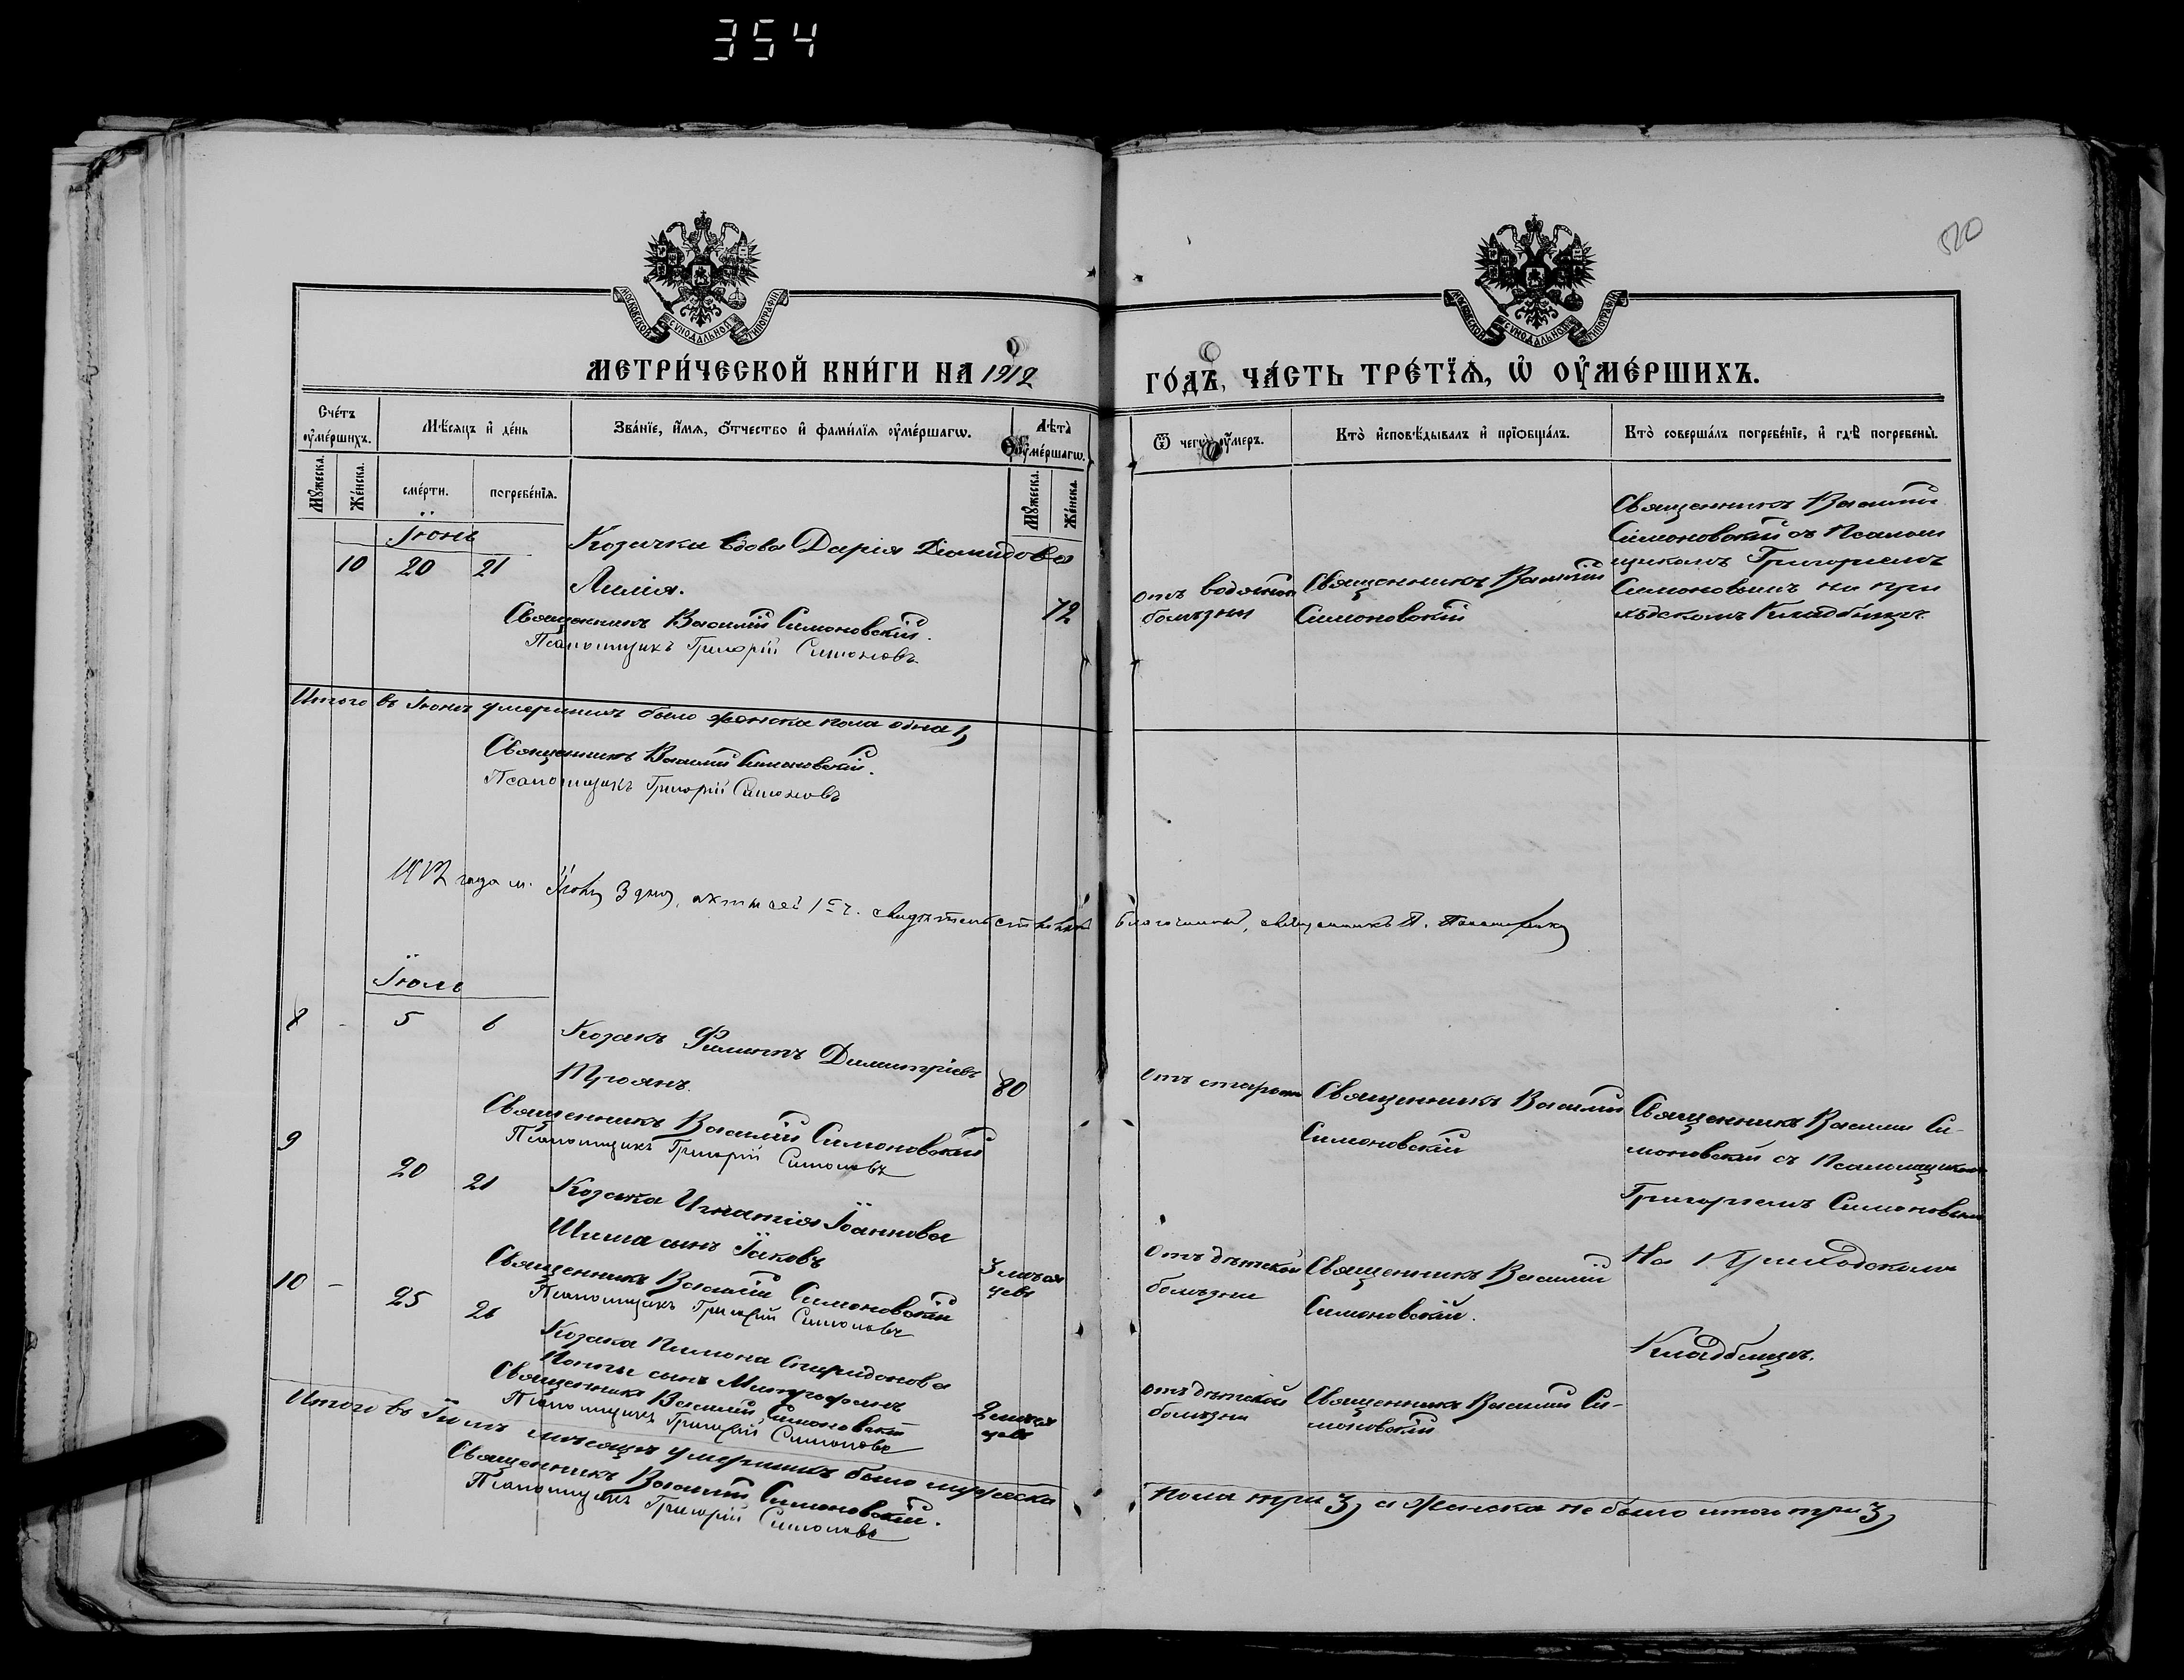 354
520
МОСКОВСКОЙ СѴНОДАЛЬНОЙ ТИПОГРАФІИ
МОСКОВСКОЙ СѴНОДАЛЬНОЙ ТИПОГРАФІИ
МЕТРИ́ЧЕСКОЙ КНИ́ГИ НА 1912
ГО́ДЪ, ЧА́СТЬ ТРЕ́ТЇѦ, Ѡ҆ ОУ҆МЕ́РШИХЪ.
Сче́тъ
оу҆ме́ршихъ.
Мѣ́сяцъ и҆ де́нь
Зва́нїе, и҆́мѧ, ѻ҆́тчество и҆ фами́лїѧ оу҆ме́ршагѡ.
Лѣта̀
оу҆ме́ршагѡ.
Ѿ чегѡ̀ оу҆́меръ.
Кто̀ и҆сповѣ́дывалъ и҆ прїѻбща́лъ.
Кто̀ соверша́лъ погребе́нїе, и҆ гдѣ̀ погребены̀.
Мꙋ́жеска.
Же́нска.
сме́рти.
погребе́нїѧ.
Мꙋ́жеска.
Же́нска.
Іюнь
10 20 21
Козачка вдова Дарія Діомидова
72
Священникъ Василій Симоновскій.
Псаломщикъ Григорій Симоновъ
отъ водяной
болѣзни
Священникъ Василій
Симоновскій
Священникъ Василій
Симоновскій съ Псалом
щикомъ Григоріемъ
Симоновымъ на при
ходскомъ Кладбищѣ.
Итого въ Іюнѣ умершихъ было женска пола одна 1,
Священникъ Василій Симоновскій.
Псаломщикъ Григорій Симоновъ
1912 года м. Іюля 3 дня, сей 1ой ч. свидѣтельствовалъ
благочинный, священникъ П.
Іюль
8 - 5 6
Козакъ Филиппъ Димитріевъ
Троянъ.
80
Священникъ Василій Симоновскій
Псаломщикъ Григорій Симоновъ
отъ старости
Священникъ Василій
Симоновскій
Священникъ Василій Си-
моновскій съ Псаломщикомъ
Григоріемъ Симоновымъ
На Приходскомъ
Кладбищѣ.
9 20 21
Козака Игнатія Іоаннова
Шиша сынъ Іаковъ
3 мѣся
цевъ
Священникъ Василій Симоновскій
Псаломщикъ Григорій Симоновъ
Отъ дѣтской
болѣзни
Священникъ Василій
Симоновскій.
10 - 25 26
Козака Пимона Спиридонова
сынъ Митрофанъ
2 мѣся
цевъ
Священникъ Василій Симоновскій
Псаломщикъ Григорій Симоновъ
отъ дѣтской
болѣзни
Священникъ Василій Си-
моновскій
Итого въ Іюлѣ мѣсяцѣ умершихъ было мужеска
пола три 3, а женска не было итого три 3,
Священникъ Василій Симоновскій.
Псаломщикъ Григорій Симоновъ